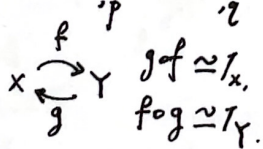 'p 'q
f
X ⇄ Y g∘f ≃ 1_X,
g f∘g ≃ 1_Y.